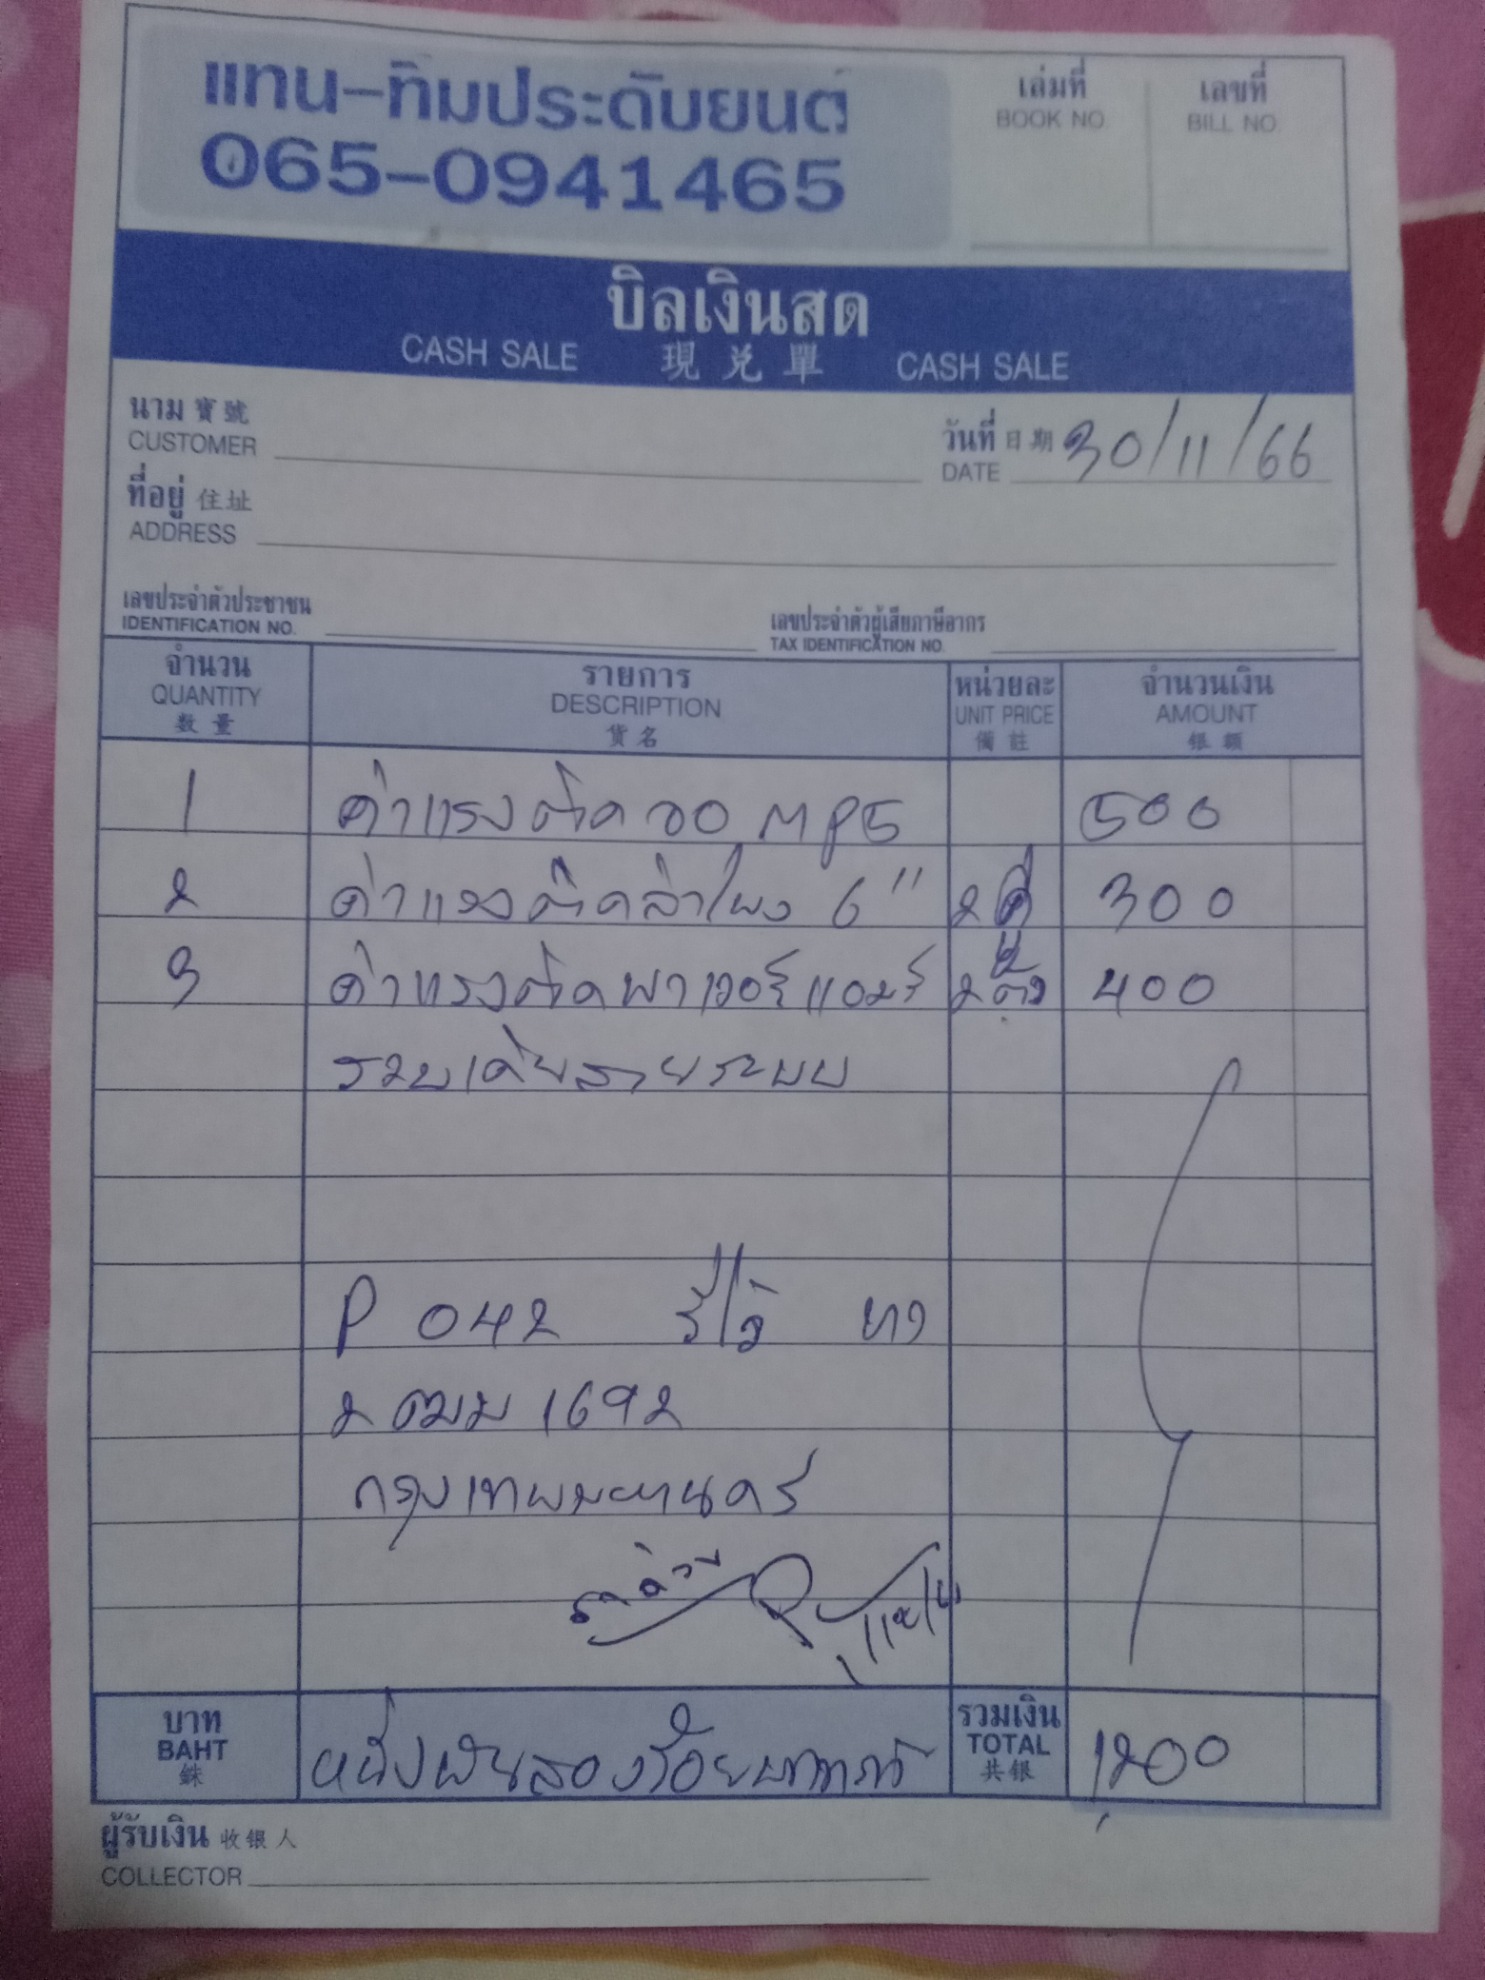 แทน-ทิมประดับยนต์
065-0941465
เล่มที่
BOOK NO.
เลขที่
BILL NO.
บิลเงินสด
CASH SALE 現兌單 CASH SALE
นาม 寶號
CUSTOMER
วันที่ 日期 30/11/66
DATE
ที่อยู่ 住址
ADDRESS
เลขประจำตัวประชาชน
IDENTIFICATION NO.
เลขประจำตัวผู้เสียภาษีอากร
TAX IDENTIFICATION NO.
จำนวน รายการ หน่วยละ จำนวนเงิน
QUANTITY DESCRIPTION UNIT PRICE AMOUNT
数量 貨名 備註 銀額
1 ค่าแรงติดจอ MP5 500
2 ค่าแรงติดลำโพง 6" 2 300
3 ค่าแรงติดพาเวอร์แอมร์ 2 ตัว 400
รวมเดินสายระบบ
P 042 รีโว่
2 ฒฒ 1692
กรุงเทพมหานคร
บาท หนึ่งพันสองร้อยบาท รวมเงิน 1,200
BAHT TOTAL
銖 共银
ผู้รับเงิน 收银人
COLLECTOR